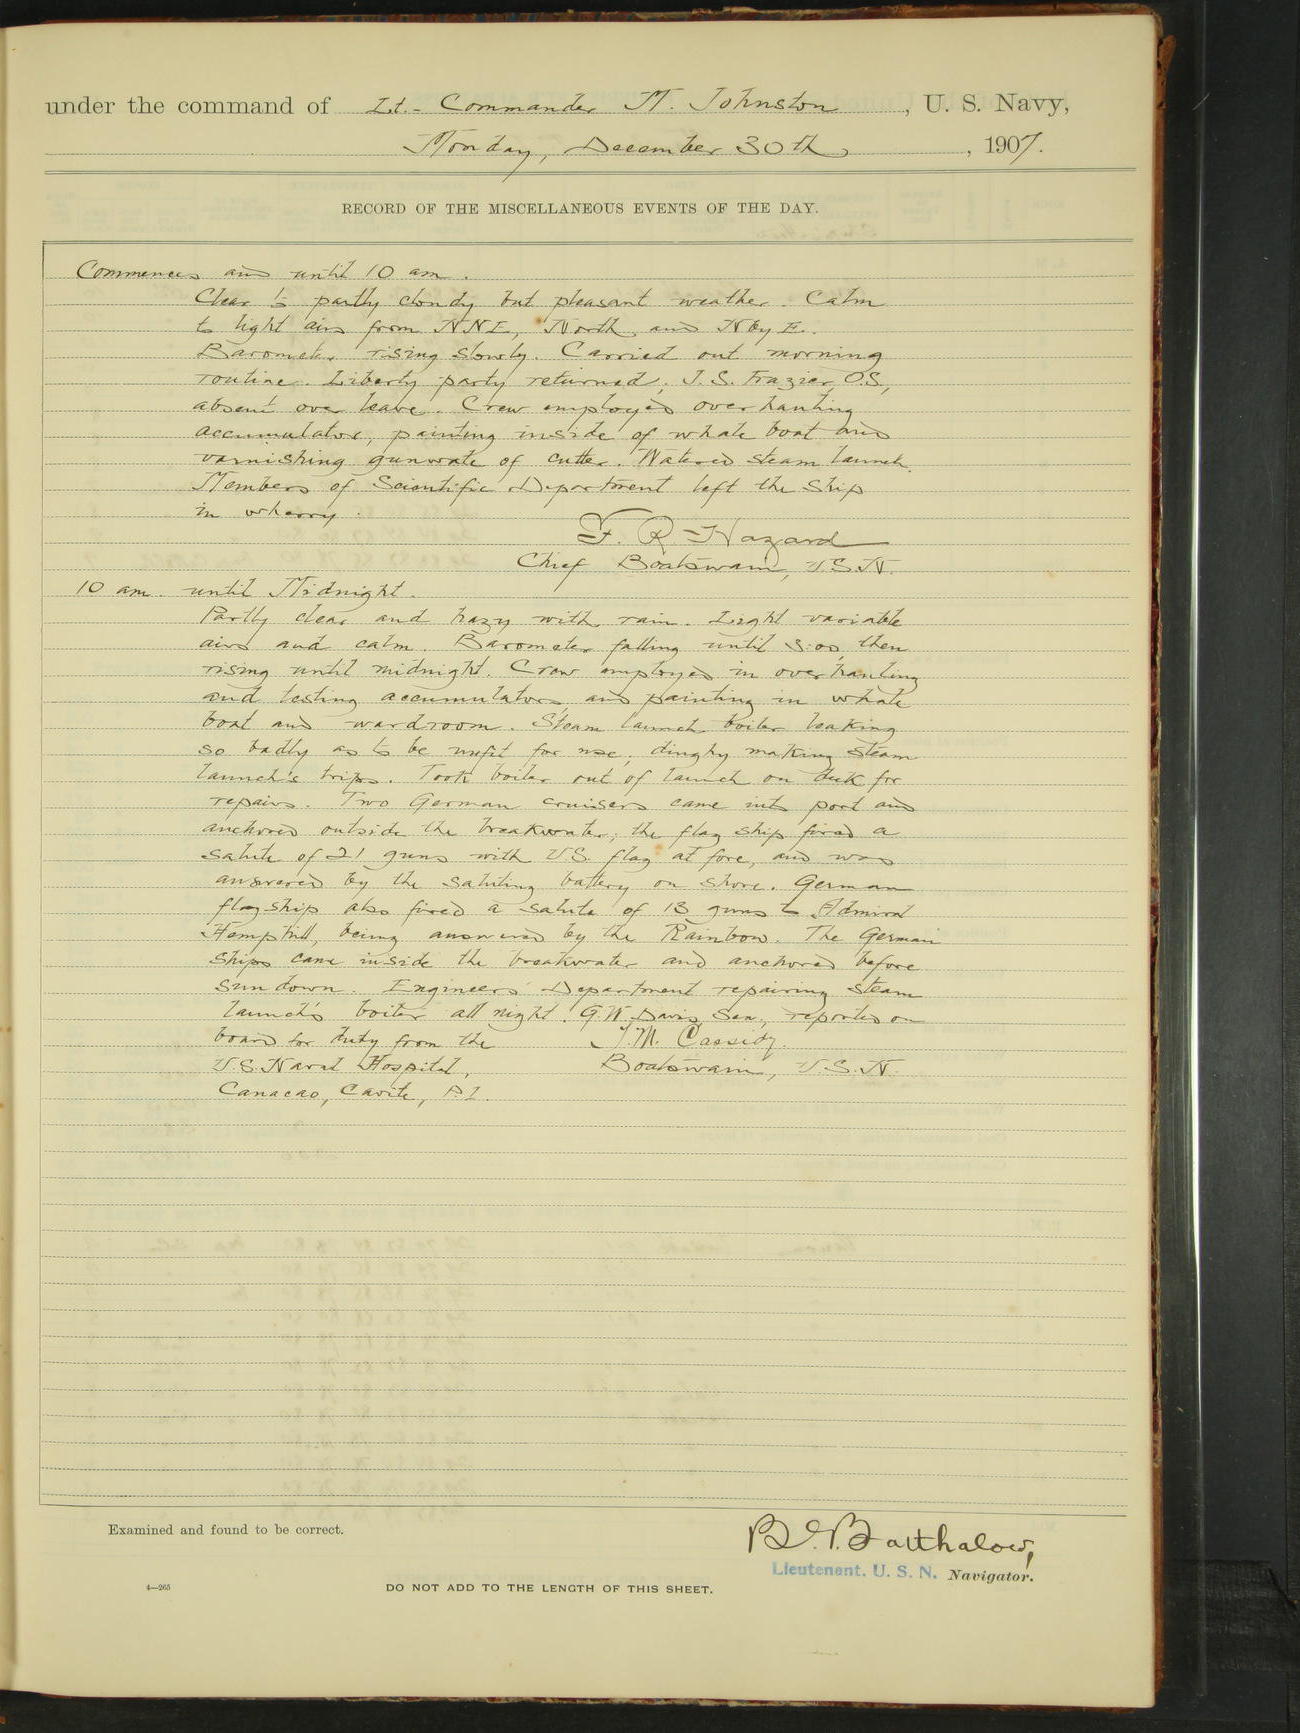 under the command of Lt.- Commander M. Johnston, U. S. Navy,
Monday, December 30th, 1907.
RECORD OF THE MISCELLANEOUS EVENTS OF THE DAY.
Commences and until 10 am.
Clear to partly cloudy but pleasant weather. Calm
to light airs from NNE, North and N by E.
Barometer rising slowly. Carried out morning
routine. Liberty party returned, J. S. Frazier, O.S.,
absent over leave. Crew employed overhauling
accumulator, painting inside of whale boat and
varnishing gunwale of cutter. Watered steam launch.
Members of Scientific Department left the ship
in wherry.
F. R. Hazard
Chief Boatswain, U.S.N.
10 am. until Midnight.
Partly clear and hazy with rain. Light variable
airs and calm. Barometer falling until 3:00, then
rising until midnight. Crew employed in overhauling
and testing accumulators, and painting in whale
boat and wardroom. Steam launch boiler leaking
so badly as to be unfit for use; dinghy making steam
launch's trips. Took boiler out of launch on deck for
repairs. Two German cruisers came into port and
anchored outside the breakwater; the flag ship fired a
salute of 21 guns with U.S. flag at fore, and was
answered by the saluting battery on shore. German
flagship also fired a salute of 13 guns to Admiral
Hemphill, being answered by the Rainbow. The German
ships came inside the breakwater and anchored before
sundown. Engineers' Department repairing steam
launch's boiler all night. G.W. Davis, Sea., reported on
board for duty from the
T.M. Cassidy.
U.S. Naval Hospital,
Boatswain, U.S.N.
Canacao, Cavite, P.I.
Examined and found to be correct.
Barthalow,
Lieutenant. U. S. N. Navigator.
4—265
DO NOT ADD TO THE LENGTH OF THIS SHEET.